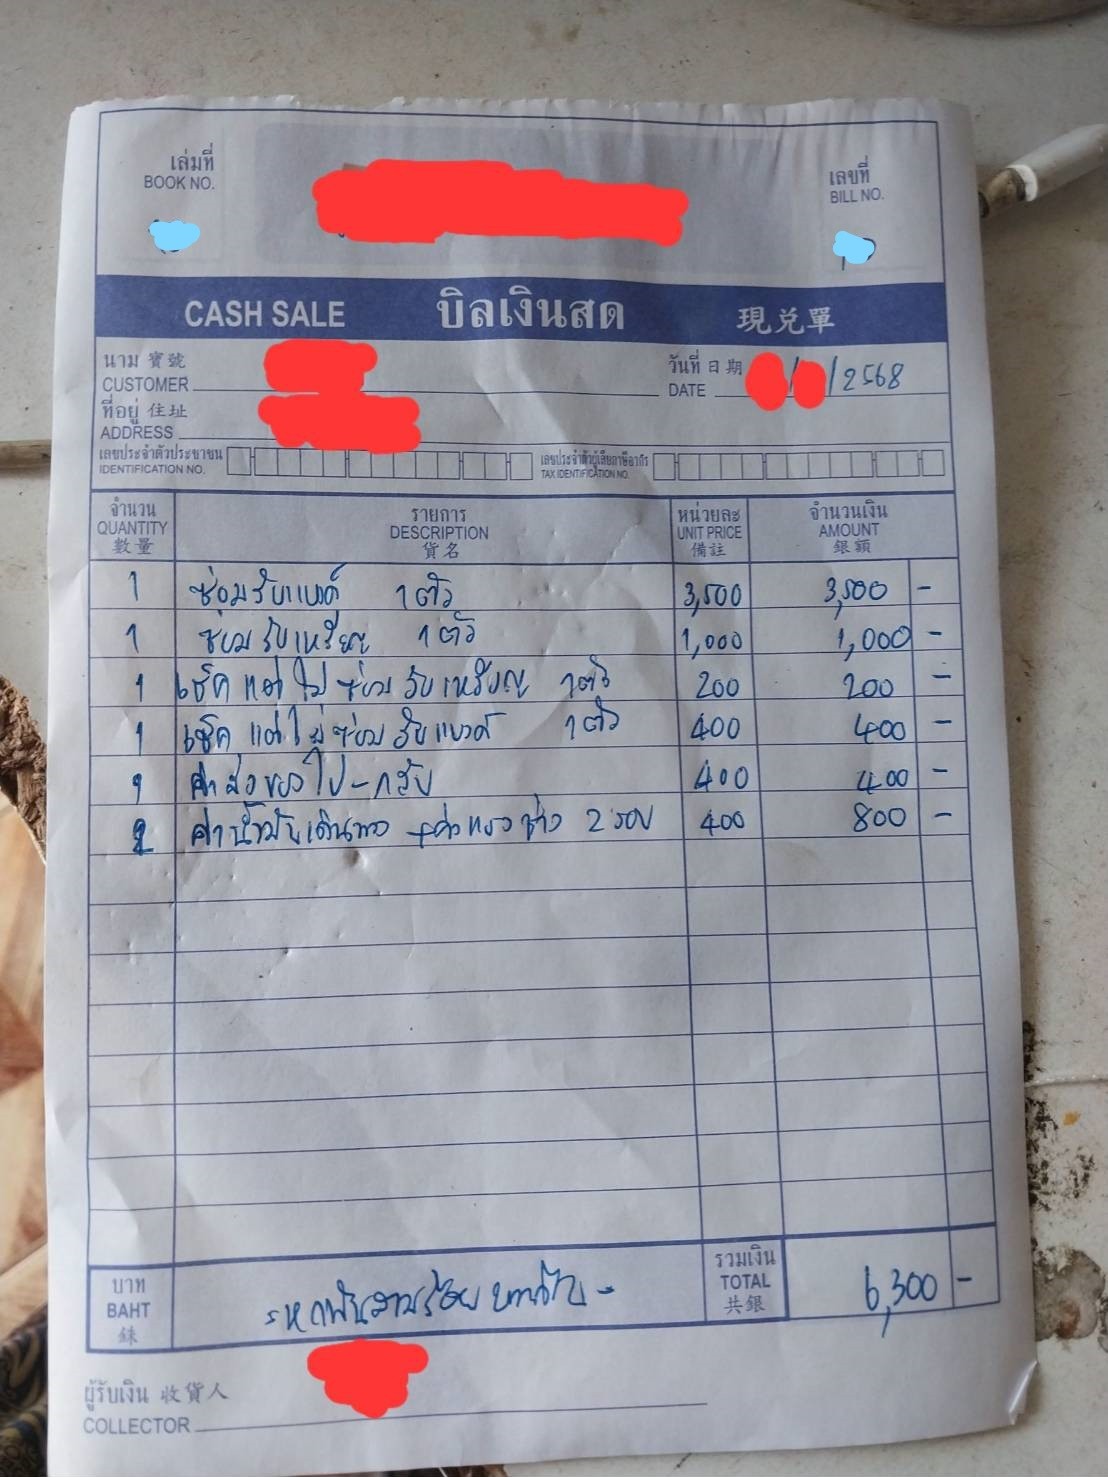 เล่มที่
BOOK NO.
เลขที่
BILL NO.
CASH SALE บิลเงินสด 現兑單
นาม 寶號
CUSTOMER
วันที่ 日期
DATE / /2568
ที่อยู่ 住址
ADDRESS
เลขประจำตัวประชาชน
IDENTIFICATION NO.
เลขประจำตัวผู้เสียภาษีอากร
TAX IDENTIFICATION NO.
จำนวน
QUANTITY
數量
รายการ
DESCRIPTION
貨名
หน่วยละ
UNIT PRICE
備註
จำนวนเงิน
AMOUNT
銀額
1 ซ่อมรับแบงค์ 1 ตัว 3,500 3,500 -
1 ซ่อมรับเหรียญ 1 ตัว 1,000 1,000 -
1 เช็ค แต่ไม่ซ่อม รับเหรียญ 1 ตัว 200 200 -
1 เช็ค แต่ไม่ซ่อม รับแบงค์ 1 ตัว 400 400 -
1 ค่าส่งของไป-กลับ 400 400 -
2 ค่าน้ำมันเดินทาง +ค่าแรงช่าง 2 รอบ 400 800 -
บาท
BAHT
銖
หกพันสามร้อย บาท -
รวมเงิน
TOTAL
共銀
6,300 -
ผู้รับเงิน 收貨人
COLLECTOR